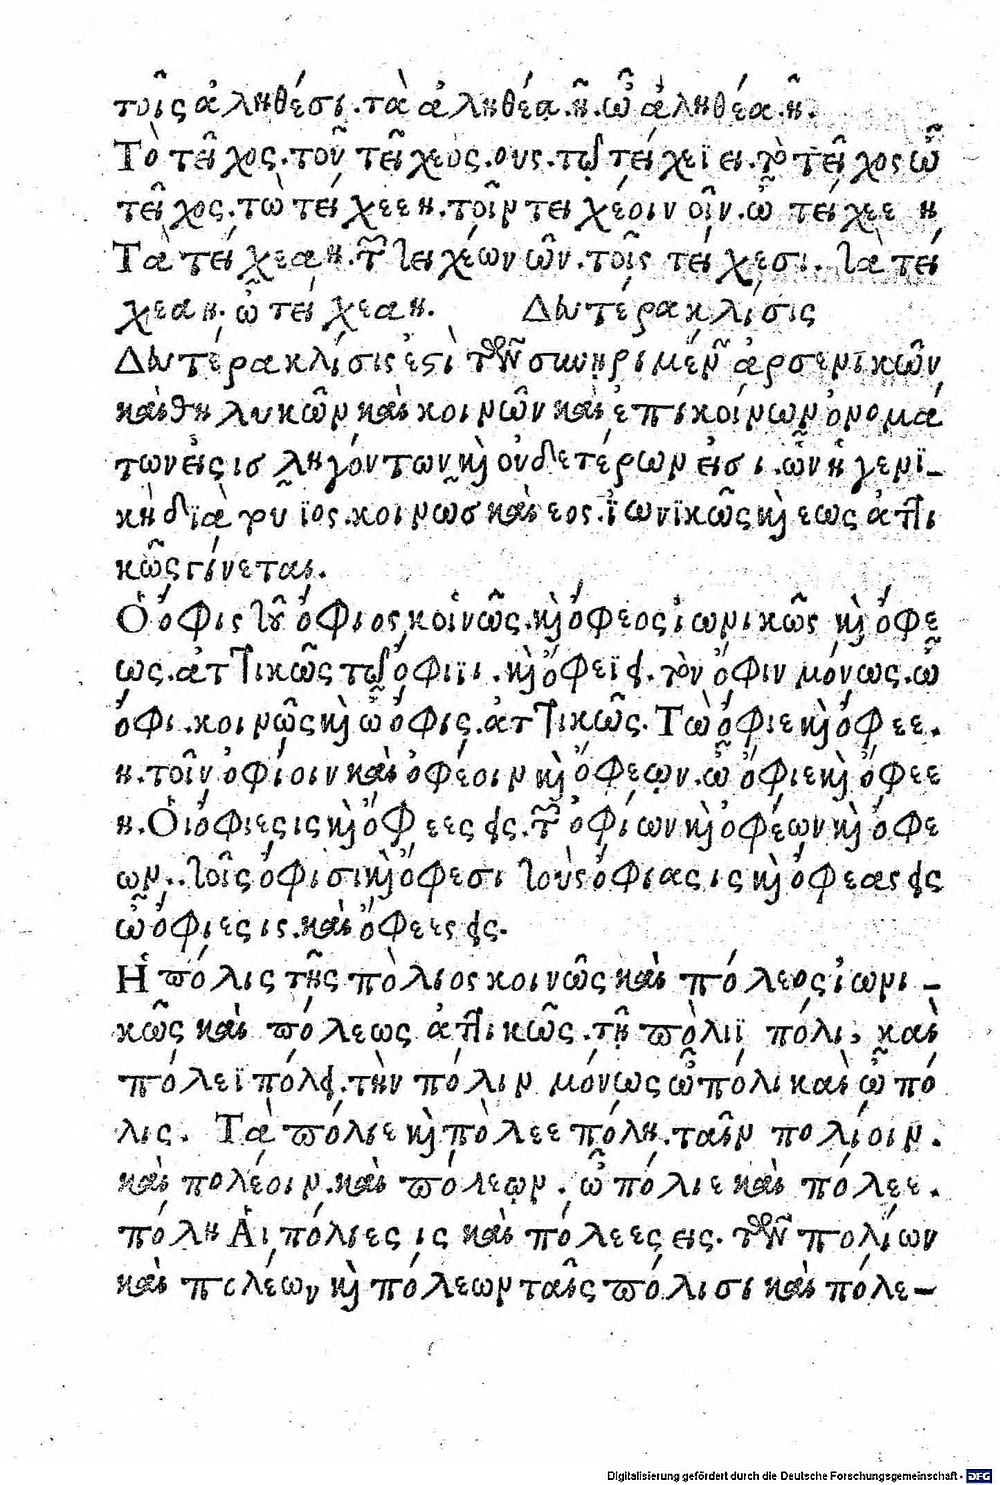 τοῖς ἀληθέσι.τὰ ἀληθέα.ῆ.ὦ ἀληθέα.ῆ.
Τὸ τεῖχος.τοῦ τεῖχεος.ους.τῷ τείχεϊ ει.τὸ τεῖχος ὦ
τεῖχος.τὼ τείχεε η.τοῖν τειχέοιν οῖν.ὦ τείχεε η
Τὰ τείχεα η.τῶν τειχέων ῶν.τοῖς τείχεσι.τὰ τεί
χεα η.ὦ τείχεα η. Δευτέρα κλίσις
Δευτέρα κλίσις ἐστὶ τῶν συνῃριμένων ἀρσενικῶν
καὶ θηλυκῶν καὶ κοινῶν καὶ ἐπικοίνων ὀνομά
των εἰς ισ ληγόντων καὶ οὐδετέρων εἰσ ι.ὧν ἡ γενι-
κὴ διὰ τοῦ ϊος.κοινῶσ καὶ εος.ϊωνϊκῶς καὶ εως ἀττι
κῶς γίνεται.
Ὁ ὄφις τοῦ ὄφιος κοινῶς.καὶ ὄφεος ἰωνικῶς καὶ ὄφε
ως.ἀττικῶς τῷ ὄφιϊ ι.καὶ ὄφεϊ ει.τὸν ὄφιν μόνως.ὦ
ὄφι.κοινῶς καὶ ὦ ὄφις.ἀττικῶς.Τὼ ὄφιε καὶ ὄφεε.
η.τοῖν ὀφίοιν καὶ ὀφέοιν καὶ ὄφεῳν.ὦ ὄφιε καὶ ὄφεε
η.Οἱ ὄφιες ις καὶ ὄφεες εις.τῶν ὀφίων καὶ ὀφέων καὶ ὄφε
ων..τοῖς ὄφισι καὶ ὄφεσι τοὺς ὄφιας ις καὶ ὄφεας εις
ὦ ὄφιες ις.καὶ ὄφεες εις.
Ἡ πόλις τῆς πόλιος κοινῶς καὶ πόλεος ἰωνι-
κῶς καὶ πόλεως ἀττικῶς.τῇ πόλιϊ πόλι, καὶ
πόλεϊ πόλει.τὴν πόλιν μόνως ὦ πόλι καὶ ὦ πό
λις. Τὰ πόλιε καὶ πόλεε πόλη.ταῖν πολίοιν.
καὶ πολέοιν.καὶ πόλεῳν.ὦ πόλιε καὶ πόλεε.
πόλη Ἁι πόλιες ις καὶ πόλεες εις.τῶν πολίων
καὶ πολέων καὶ πόλεων ταῖς πόλισι καὶ πόλε-